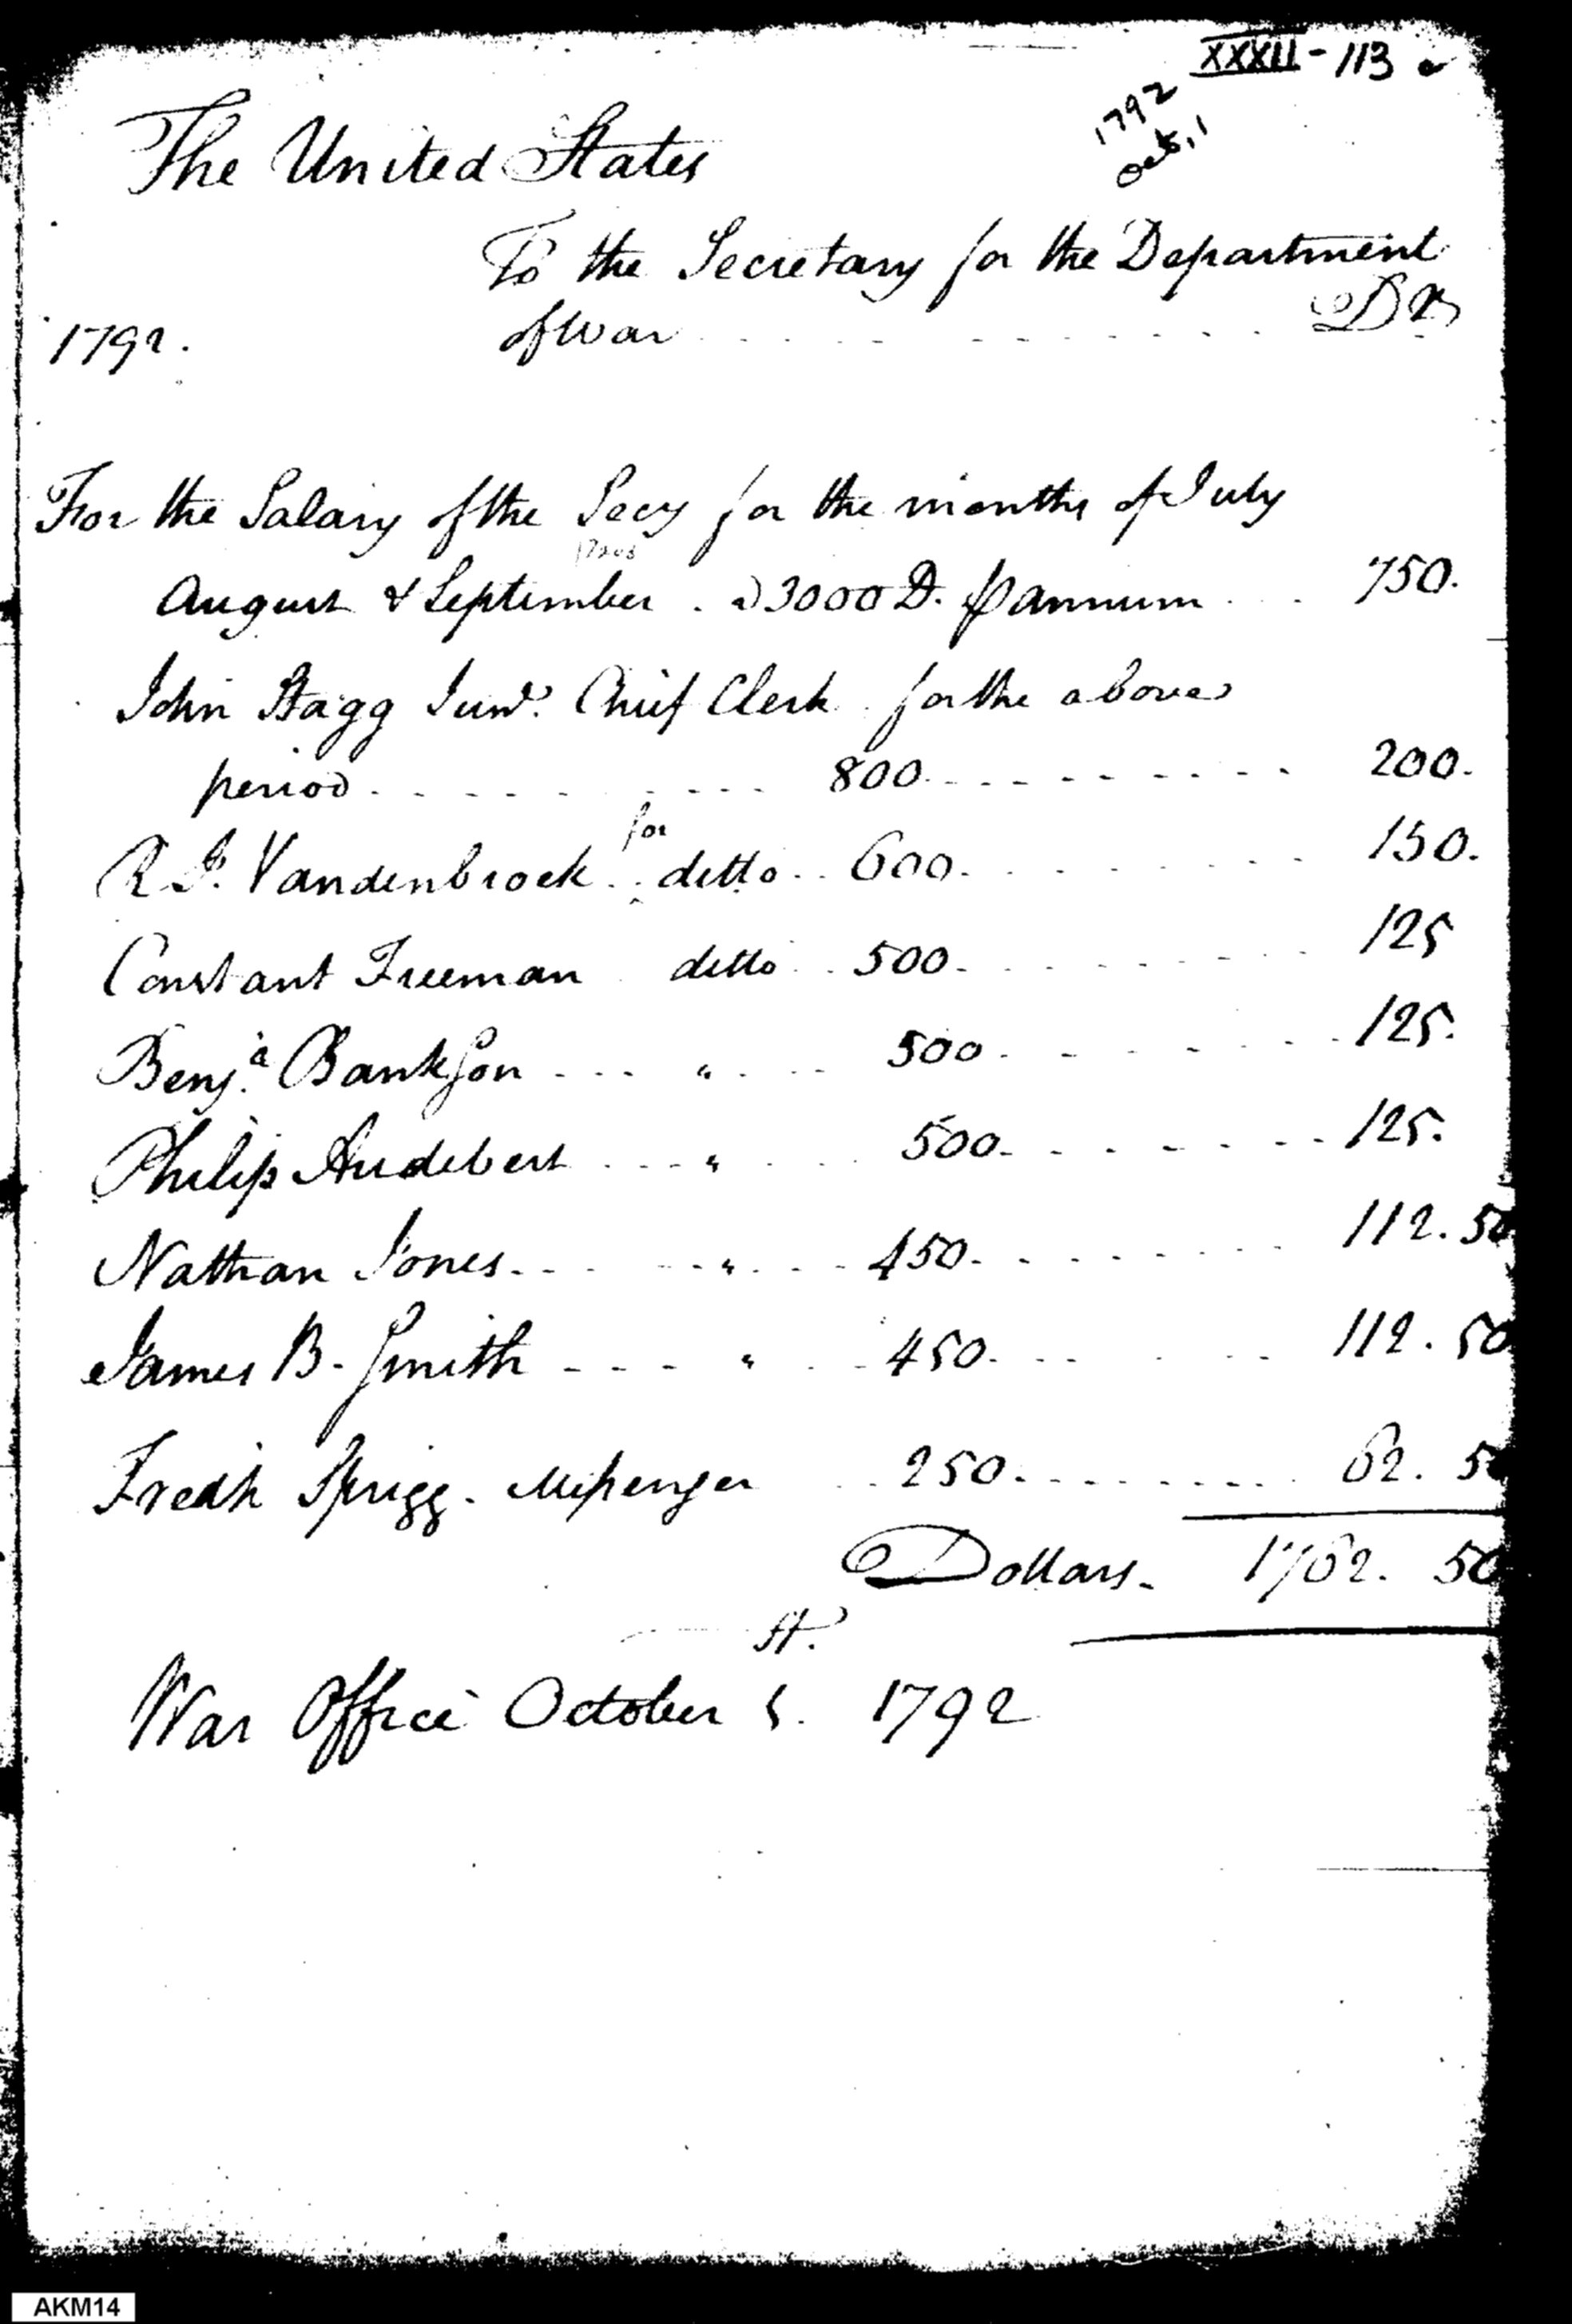 XXXII - 113
1792
Oct, 1
The United States
To the Secretary for the Department
1792. of War . . . . . . . . . . . . Dr
For the Salary of the Secy for the months of July
August & September . a 3000 D. ⅌ annum . . . 750.
John Stagg Junr. Chief Clerk for the above
period . . . . . . . . . . 800 . . . . . . . . . 200.
R J. Vandenbroek . . for ditto . . 600 . . . . . . . . . 150.
Constant Freeman ditto . . 500 . . . . . . . . . 125
Benja. Bankson . . . " . . . 500 . . . . . . . . 125.
Philip Audebert . . . . " . . . . 500 . . . . . . . . 125.
Nathan Jones . . . . . " . . . . 450 . . . . . . . . 112. 50
James B. Smith - - - - " . . . 450 . . . . . . . 112. 50
Fredk Sprigg. Messenger . . 250 . . . . . . . . . 62. 50
Dollars - 1762. 50
St.
War Office October 1. 1792
AKM14